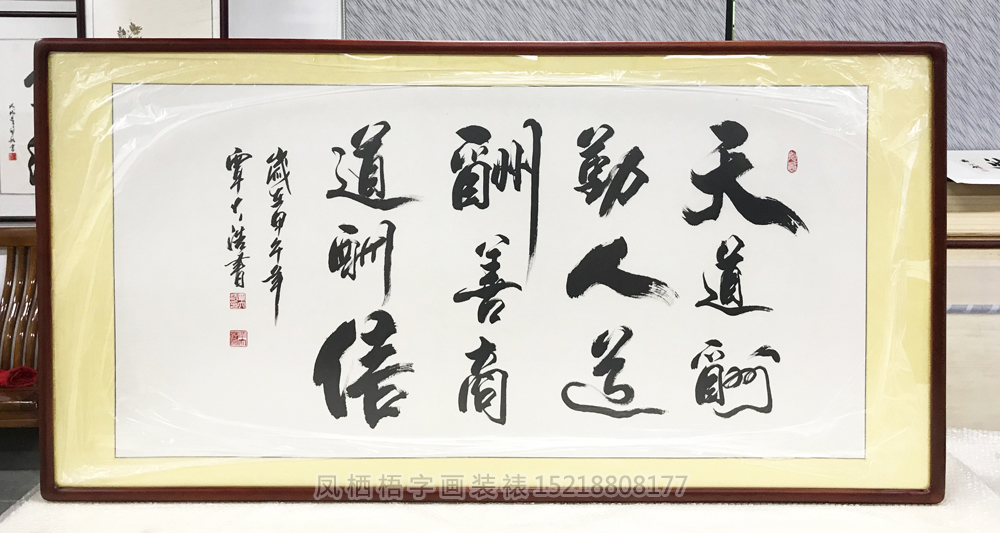 天道酬
勤人道
酬善商
道酬信
歲在甲午年
覃浩書
凤栖梧字画装裱15218808177